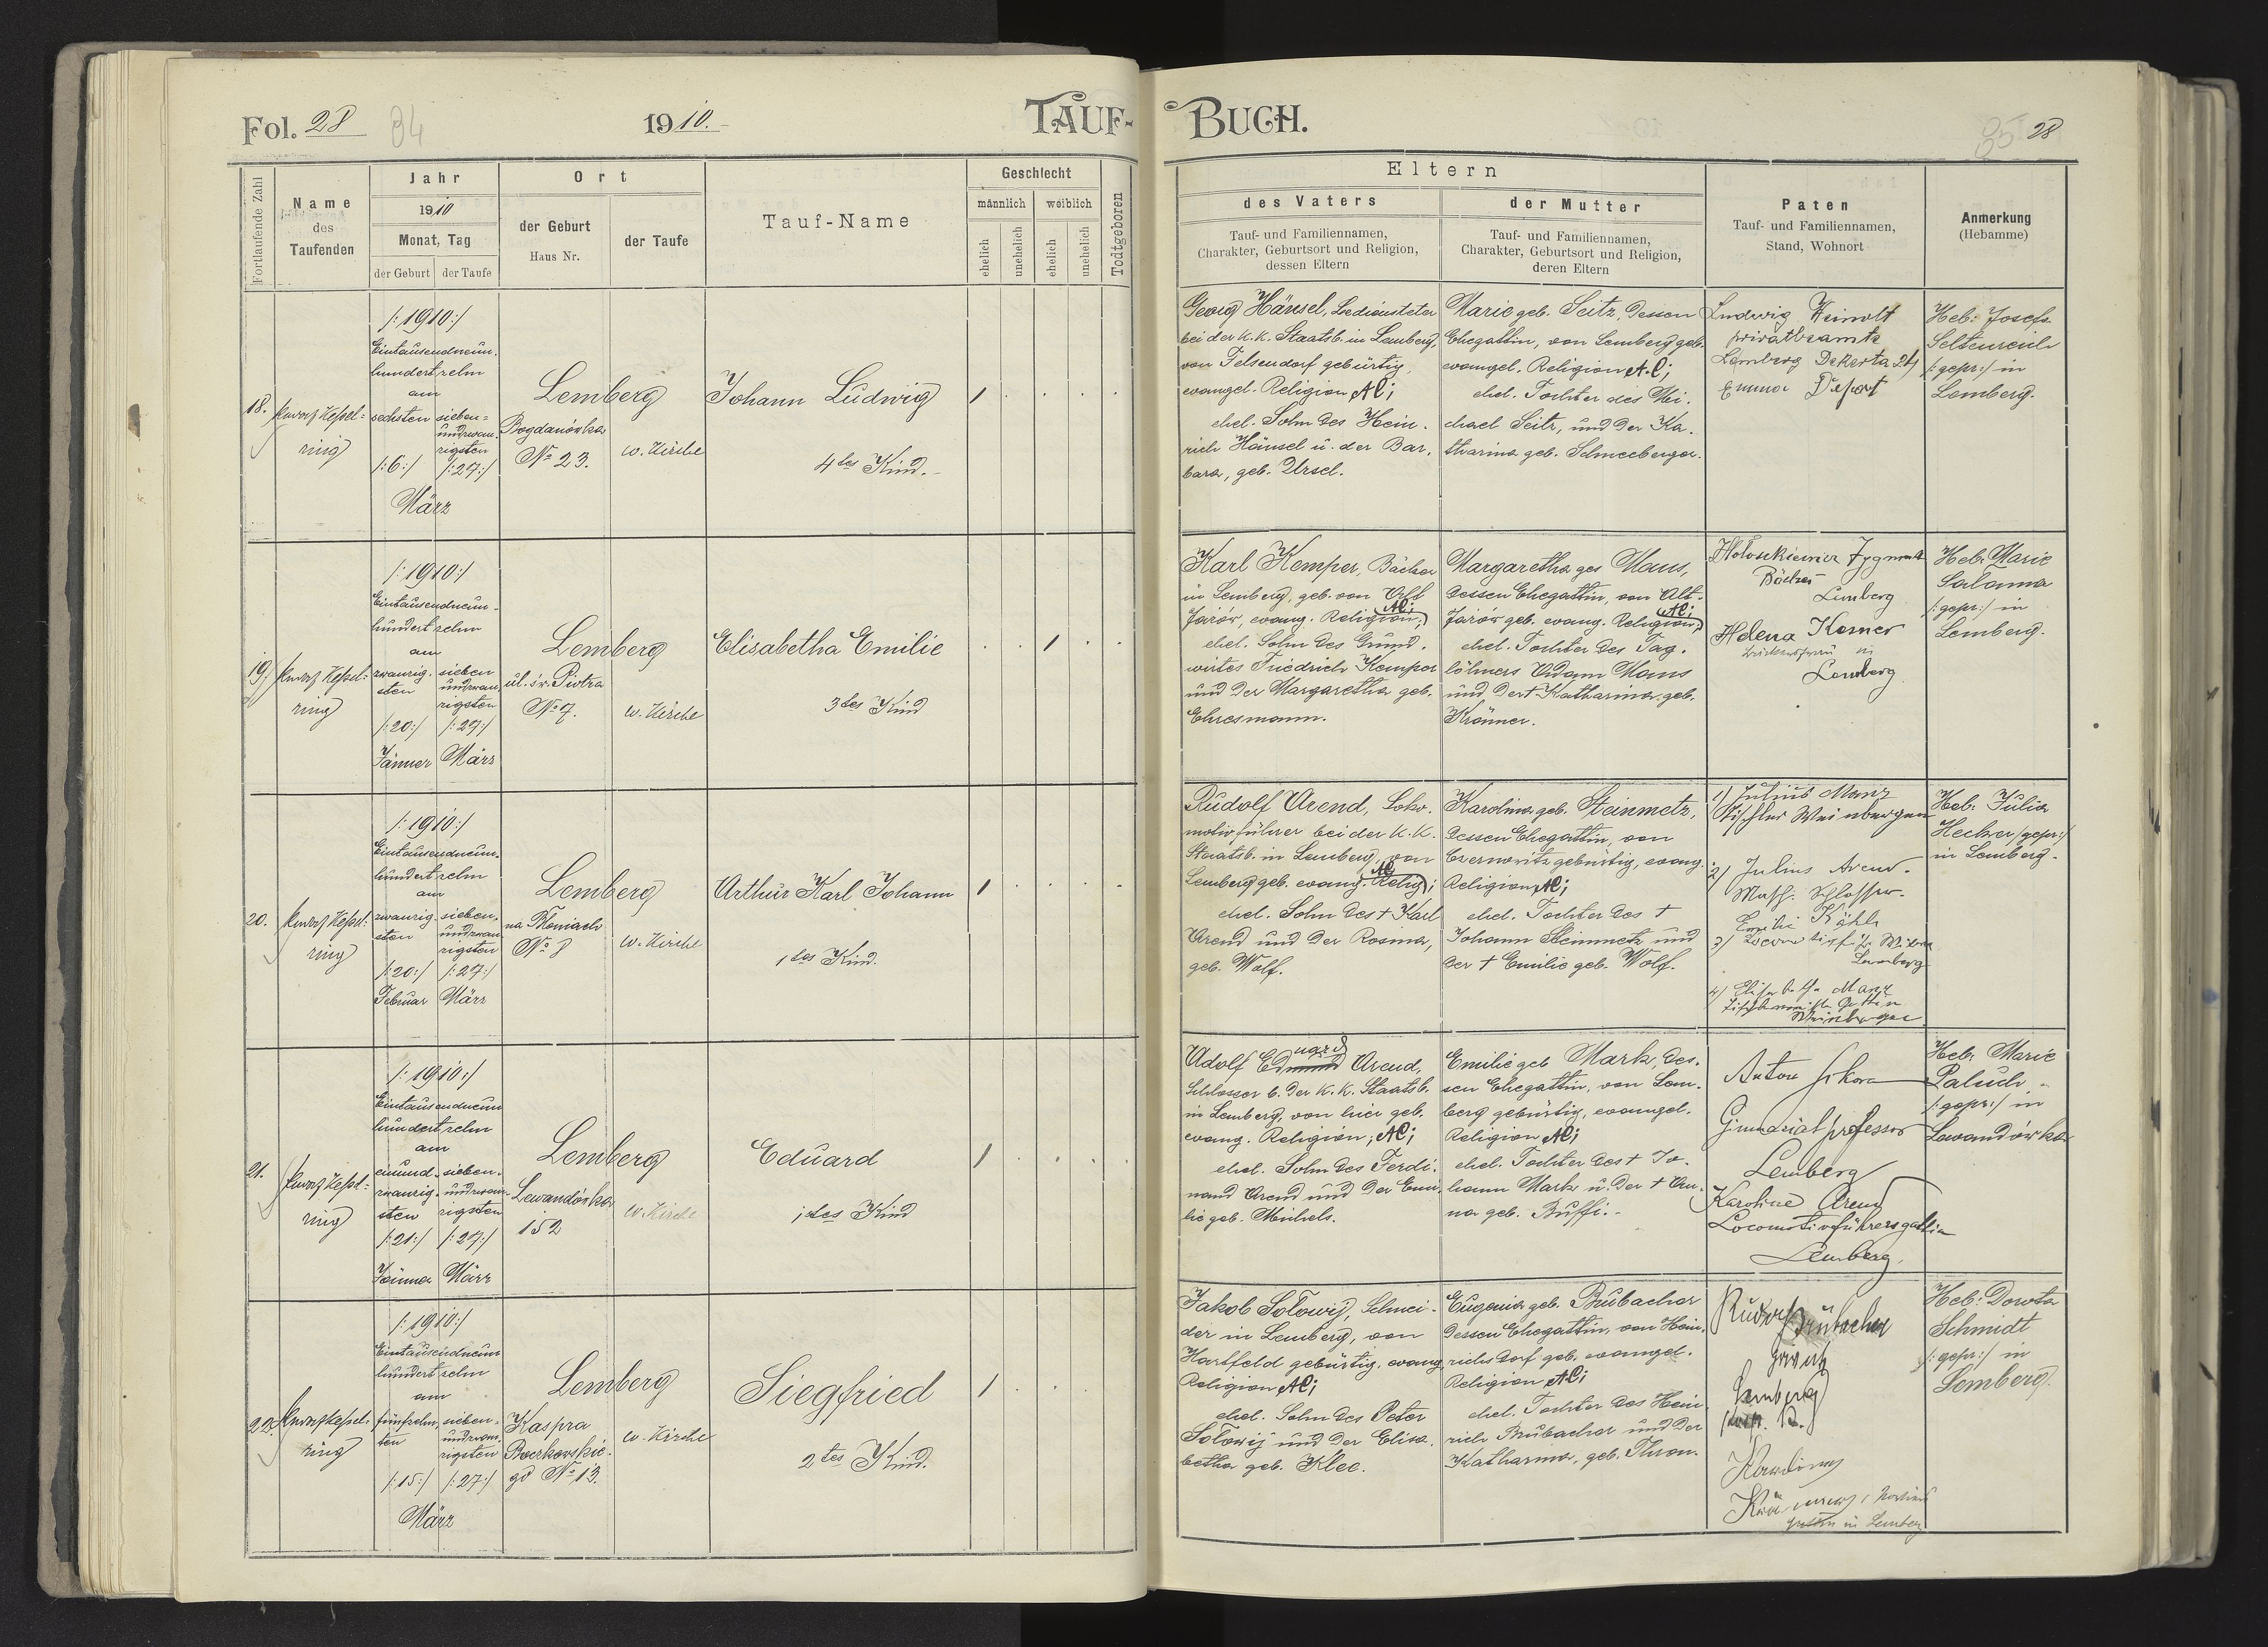 Fol. 28
84
1910.
TAUF-
BUCH.
85
28
Fortlaufende Zahl
Name
des
Taufenden
Jahr
1910
Monat, Tag
der Geburt
der Taufe
Ort
der Geburt
Haus Nr.
der Taufe
Tauf-Name
Geschlecht
männlich
weiblich
ehelich
unehelich
ehelich
unehelich
Todtgeboren
Eltern
des Vaters
Tauf- und Familiennamen,
Charakter, Geburtsort und Religion,
dessen Eltern
der Mutter
Tauf- und Familiennamen,
Charakter, Geburtsort und Religion,
deren Eltern
Paten
Tauf- und Familiennamen,
Stand, Wohnort
Anmerkung
(Hebamme)
18.
Keßel-
ring
/:1910:/
Eintausendneun-
hundertzehn
am
sechsten
/:6:/
sieben-
undzwan-
zigsten
/:27:/
März
Lemberg
Bogdanówka
No 23.
w. Kirche
Johann Ludwig
4tes Kind.-
1
Georg Hänsel, Bediensteter
bei der K.K. Staatsb. in Lemberg,
von Felsendorf gebürtig,
evangel. Religion AC;
ehel. Sohn des Hein-
rich Hänsel u. der Bar-
bara, geb. Ursel.
Marie geb. Seitz, dessen
Ehegattin, von Lemberg geb.
evangel. Religion A.C;
ehel. Tochter des Mi-
chael Seitz, und der Ka-
tharina geb. Schneeberger.
Ludwig
privatbeamte
Lemberg Dekerta 24
Emma
Heb: Josefa
/:gepr:/ in
Lemberg.
19
Keßel-
ring
/:1910:/
Eintausendneun-
hundertzehn
am
zwanzig-
sten
/:20:/
Jänner
sieben
undzwan-
zigsten
/:27:/
März
Lemberg
ul. św. Piotra
No 7.
w. Kirche
Elisabetha Emilie
3tes Kind
1
Karl Kemper, Bäcker
in Lemberg, geb. von Alt
Jazów, evang. Religion AC;
ehel. Sohn des Grund-
wirtes Friedrich Kemper
und der Margaretha geb.
Ehresmann.
Margaretha geb Maus,
dessen Ehegattin, von Alt-
Jazów geb. evang. Religion AC;
ehel. Tochter des Tag-
löhners Adam Maus
und der † Katharina, geb.
Krämer.
Hołoskiewicz Zygmunt
Bäcker
Lemberg
Helena Kesner
in
Lemberg
Heb: Marie
Salama
/:gepr:/ in
Lemberg.
20.
Keßel-
ring
/:1910:/
Eintausendneun-
hundertzehn
am
zwanzig-
sten
/:20:/
Februar
sieben-
undzwan-
zigsten
/:27:/
März
Lemberg
na Błoniach
No 8
w. Kirche
Arthur Karl Johann
1tes Kind.
1
Rudolf Arend, Loko-
motivführer bei der K.K.
Staatsb. in Lemberg, von
Lemberg geb. evang. Relig. AC;
ehel. Sohn des † Karl
Arend und der Rosina,
geb. Wolf.
Karolina geb. Steinmetz,
dessen Ehegattin, von
Czernowitz gebürtig, evang.
Religion AC;
ehel. Tochter des †
Johann Steinmetz und
der † Emilie geb. Wolf.
1) Julius Manz
Tischler Weinbergen
2) Julius Arend.
Masch: Schlosser.
3)
Lemberg
4) Elisabetha Manz
Weinbergen
Heb: Julia
Hecker /gepr:/
in Lemberg.
21.
Keßel-
ring
/:1910:/
Eintausendneun
hundertzehn
am
einund-
zwanzig-
sten
/:21:/
Jänner
sieben-
undzwan-
zigsten
/:27:/
März
Lemberg
Lewandówka
152
w. Kirche
Eduard
1tes Kind
1
Adolf Eduard Arend,
Schlosser b. der K.K. Staatsb.
in Lemberg, von hier geb.
evang. Religion; AC;
ehel. Sohn des Ferdi-
nand Arend und der Emi-
lie geb. Michels.
Emilie geb Mark, des-
sen Ehegattin, von Lem-
berg gebürtig, evangel.
Religion AC;
ehel. Tochter des † Jo-
hann Mark u. der † An-
na geb. Buffi.-
Anton
Lemberg
Karoline Arend
Locomotivführersgattin
Lemberg.
Heb: Marie
Paluch
/:gepr:/ in
Lewandówka
22.
Keßel-
ring
/:1910:/
Eintausendneun
hundertzehn
am
fünfzehn-
ten
/:15:/
sieben-
undzwan-
zigsten
/:27:/
März
Lemberg
Kaspra
Boczkowskie-
go No 13.
w. Kirche
Siegfried
2tes Kind.
1
Jakob Sołowij, Schnei-
der in Lemberg, von
Hartfeld gebürtig, evang.
Religion AC;
ehel. Sohn des Peter
Sołowij und der Elisa-
betha geb. Klee.
Eugenia geb. Brubacher
dessen Ehegattin, von Hein-
richsdorf geb. evangel.
Religion AC;
ehel. Tochter des Hein-
rich Brubacher und der
Katharina, geb. Thron.
Rudolf Brubacher
Lemberg
in Lemberg
Heb: Dorota
Schmidt
/:gepr:/ in
Lemberg.